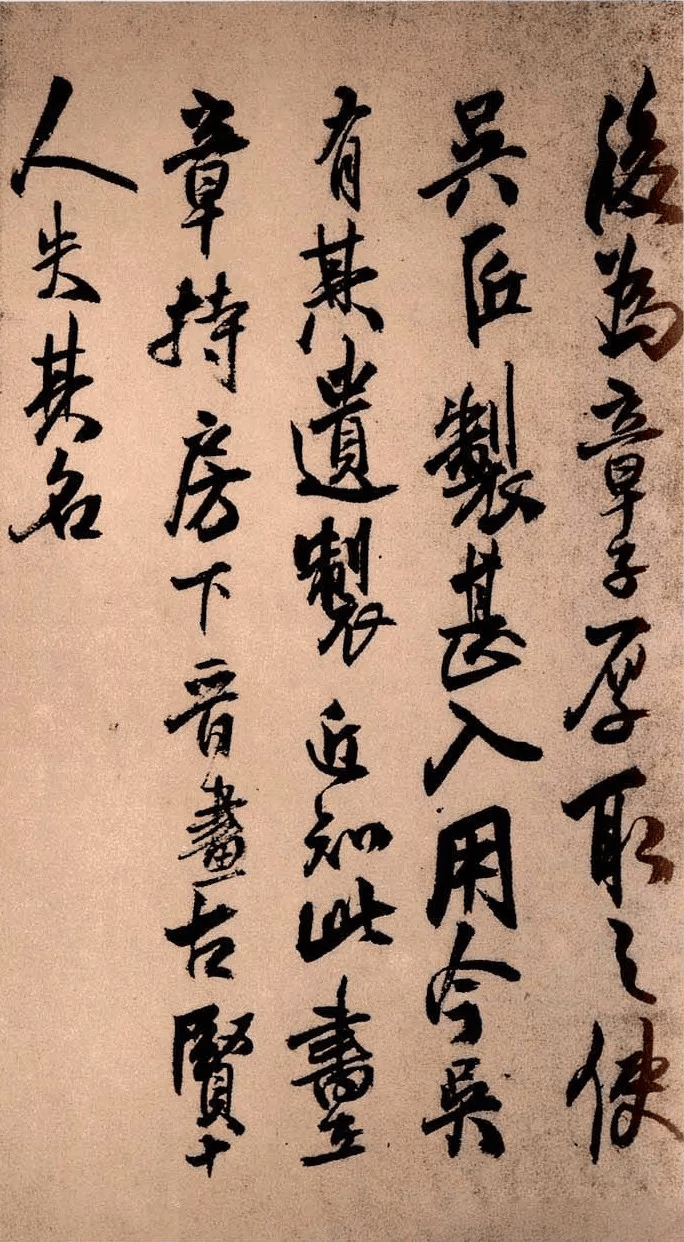 後為章子厚取之使
吳匠製甚入用今吳
有其遺製近知此畫在
章持房下晋畫古賢十
人失其名